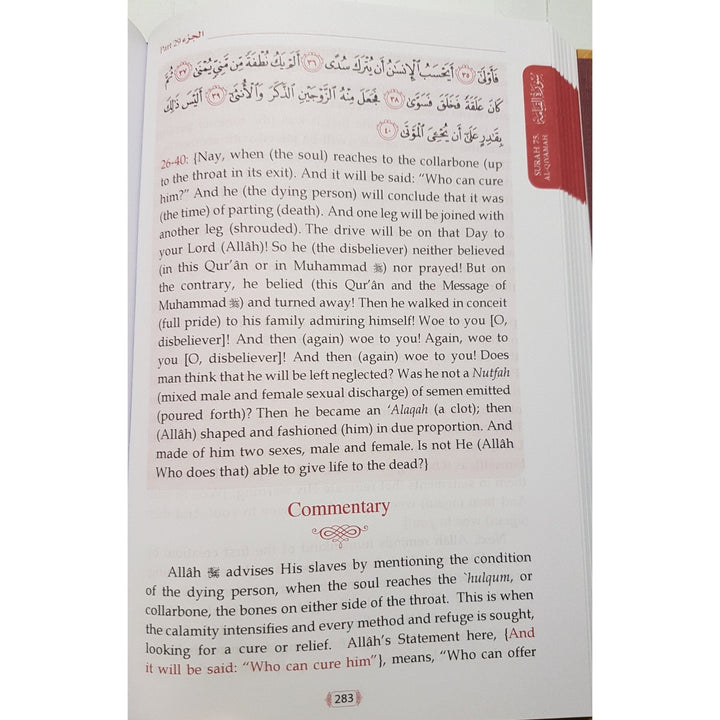 Part 29 الجزء
فَأَوْلَىٰ ٣٥ أَيَحْسَبُ الْإِنسَٰنُ أَن يُتْرَكَ سُدًى ٣٦ أَلَمْ يَكُ نُطْفَةً مِّن مَّنِيٍّ يُمْنَىٰ ٣٧ ثُمَّ
كَانَ عَلَقَةً فَخَلَقَ فَسَوَّىٰ ٣٨ فَجَعَلَ مِنْهُ الزَّوْجَيْنِ الذَّكَرَ وَالْأُنثَىٰ ٣٩ أَلَيْسَ ذَٰلِكَ
بِقَٰدِرٍ عَلَىٰ أَن يُحْـِۧيَ الْمَوْتَىٰ ٤٠
سُورَةُ القِيَامَة
SURAH 75.
AL-QIYAMAH
26-40: {Nay, when (the soul) reaches to the collarbone (up
to the throat in its exit). And it will be said: “Who can cure
him?” And he (the dying person) will conclude that it was
(the time) of parting (death). And one leg will be joined with
another leg (shrouded). The drive will be on that Day to
your Lord (Allâh)! So he (the disbeliever) neither believed
(in this Qur’ân or in Muhammad ﷺ) nor prayed! But on
the contrary, he belied (this Qur’ân and the Message of
Muhammad ﷺ) and turned away! Then he walked in conceit
(full pride) to his family admiring himself! Woe to you [O,
disbeliever]! And then (again) woe to you! Again, woe to
you [O, disbeliever]! And then (again) woe to you! Does
man think that he will be left neglected? Was he not a Nutfah
(mixed male and female sexual discharge) of semen emitted
(poured forth)? Then he became an ‘Alaqah (a clot); then
(Allâh) shaped and fashioned (him) in due proportion. And
made of him two sexes, male and female. Is not He (Allâh
Who does that) able to give life to the dead?}
Commentary
Allâh advises His slaves by mentioning the condition
of the dying person, when the soul reaches the `hulqum, or
collarbone, the bones on either side of the throat. This is when
the calamity intensifies and every method and refuge is sought,
looking for a cure or relief. Allâh’s Statement here, {And
it will be said: “Who can cure him”}, means, “Who can offer
283